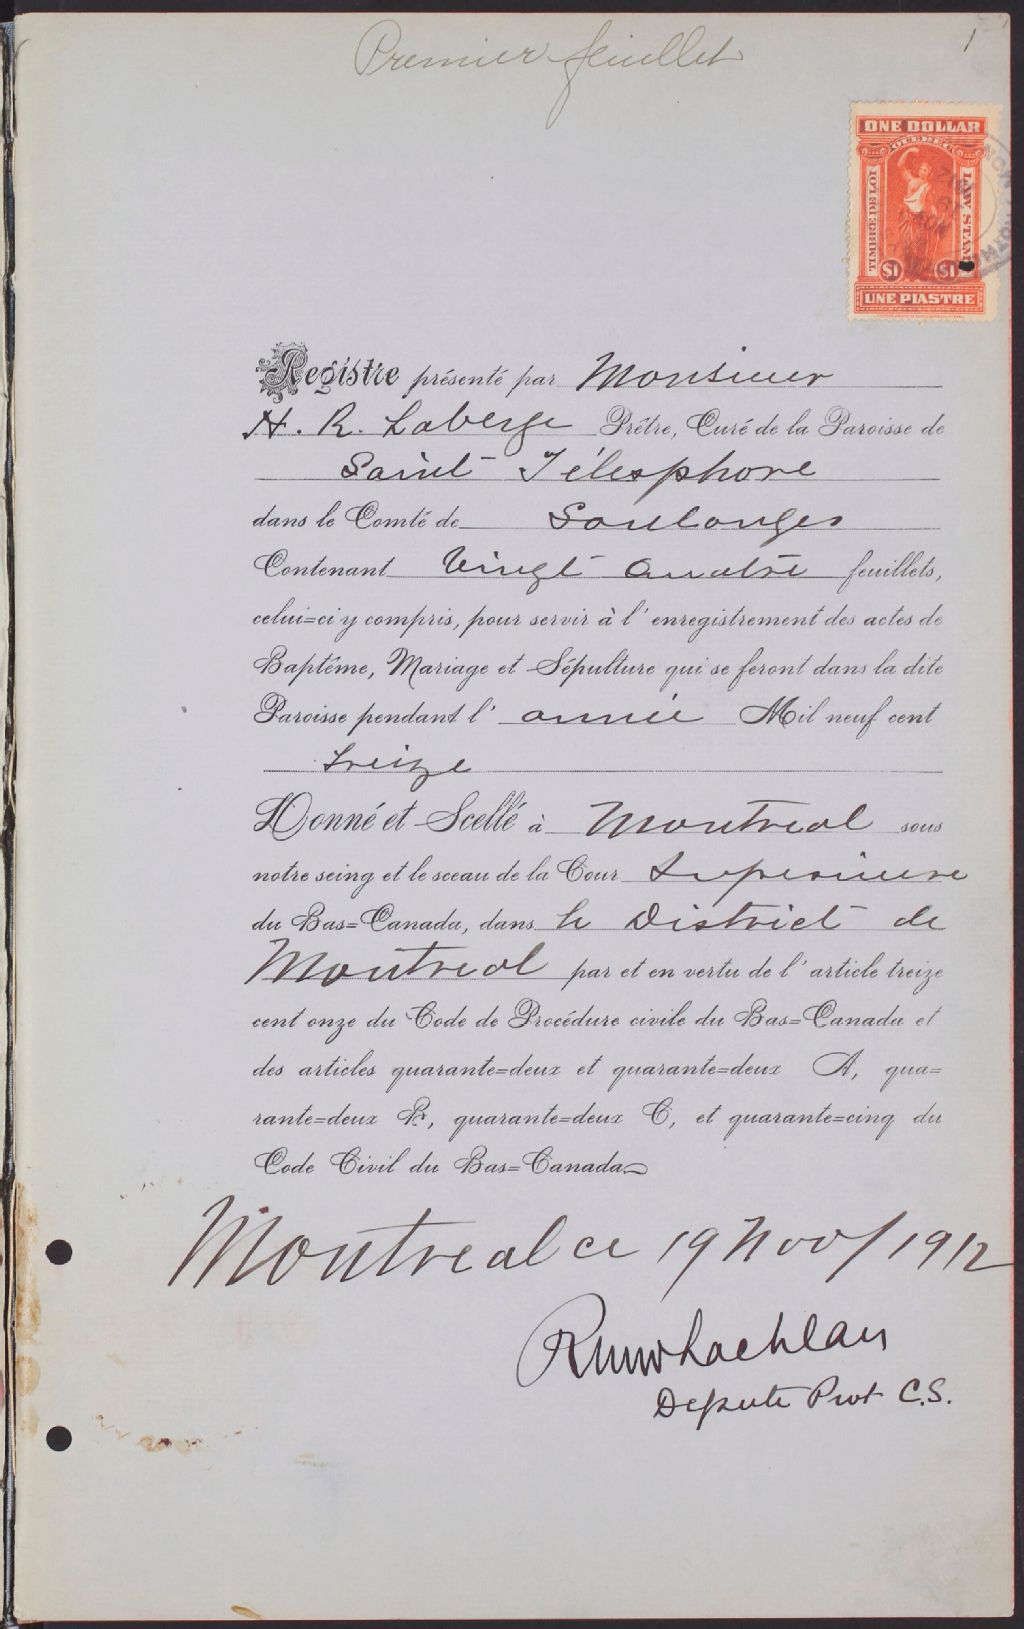 Premier feuillet
1
ONE DOLLAR
QUEBEC
TIMBRE DE LOI
LAW STAMP
$1 $1
UNE PIASTRE
Registre présenté par Monsieur
H. R. Laberge Prêtre, Curé de la Paroisse de
Saint Télesphore
dans le Comté de Soulanges
Contenant Vingt Quatre feuillets,
celui=ci y compris, pour servir à l'enregistrement des actes de
Baptême, Mariage et Sépulture qui se feront dans la dite
Paroisse pendant l'année Mil neuf cent
treize
Donné et Scellé à Montreal sous
notre seing et le sceau de la Cour Superieure
du Bas=Canada, dans le District de
Montreal par et en vertu de l'article treize
cent onze du Code de Procédure civile du Bas=Canada et
des articles quarante=deux et quarante=deux A, qua=
rante=deux B, quarante=deux C, et quarante=cinq du
Code Civil du Bas=Canada
Montreal ce 19 Nov/1912
Depute Prot C.S.